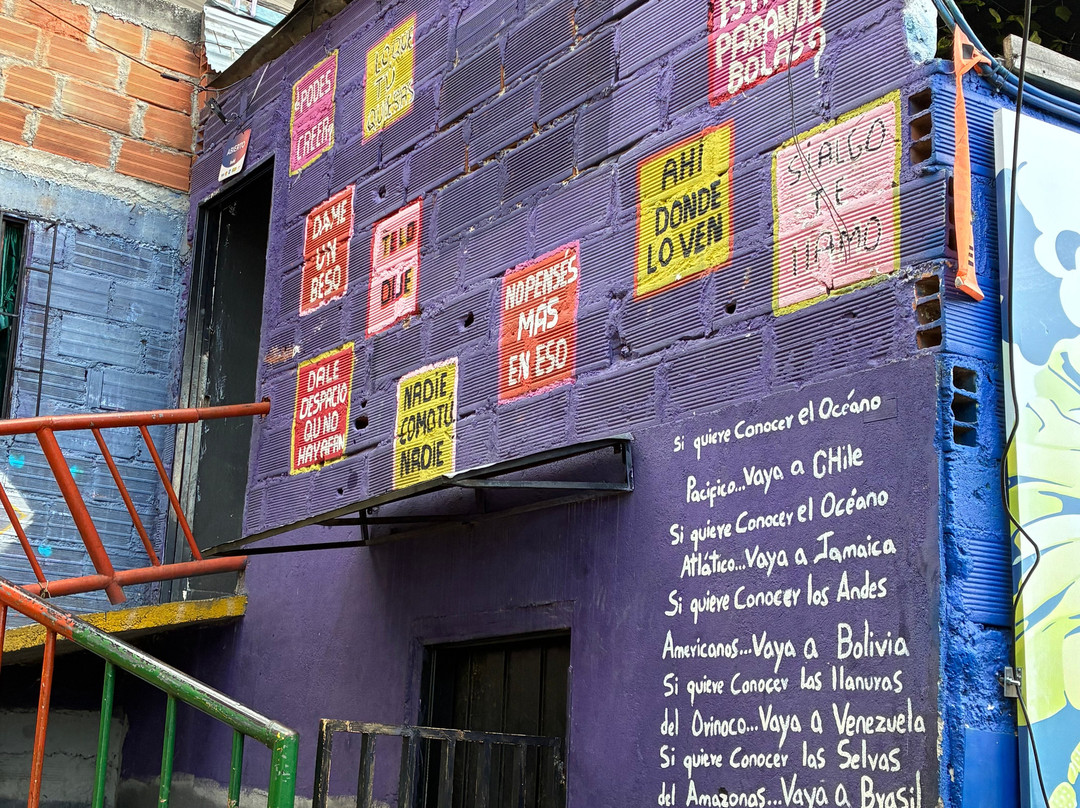 ¿PODES
CREER?
LO QUE
TU
QUIERAS
ESTAS
PARANDO
BOLAS?
ABIERTO
DAME
UN
BESO
TE LO
DIJE
NO PENSÉS
MAS
EN ESO
AHÍ
DONDE
LO VEN
SI ALGO
TE
LLAMO
DALE
DESPACIO
QU NO
HAYAFAN
NADIE
COMO TU
NADIE
Si quiere Conocer el Océano
Pacífico...Vaya a CHile
Si quiere Conocer el Océano
Atlático...Vaya a Jamaica
Si quiere Conocer los Andes
Americanos...Vaya a Bolivia
Si quiere Conocer las llanuras
del Orinoco...Vaya a Venezuela
Si quiere Conocer las Selvas
del Amazonas...Vaya a Brasil